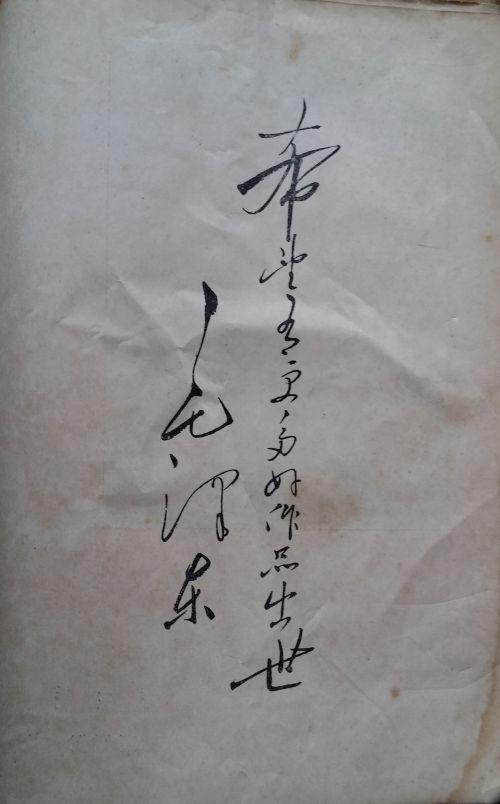 希望有更多好作品出世
毛泽东